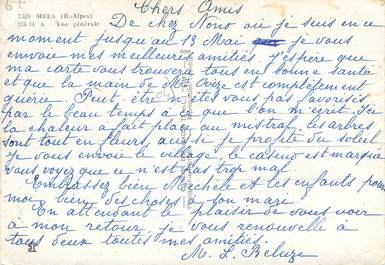 LES MEES (B.-Alpes)
228-15 A - Vue générale
Chers Amis
De chez Nono où je suis en ce
moment jusqu'au 13 Mai je vous
envoie mes meilleures amitiés. J'espère que
ma carte vous trouvera tous en bonne santé
et que la main de Me est complètement
guérie. Peut être n'êtes vous pas favorisés
par le beau temps à ce que l'on m'écrit. Ici
la chaleur a fait place au mistral, les arbres
sont tout en fleurs, aussi je profite du soleil
Je vous envoie le village, le casino est marqué
vous voyez que ce n'est pas trop mal
Embrassez bien Michèle et les enfants pour
moi bien des choses à son mari
En attendant le plaisir de vous voir
à mon retour, je vous renouvelle à
tous deux toutes mes amitiés.
M. L. Beluze